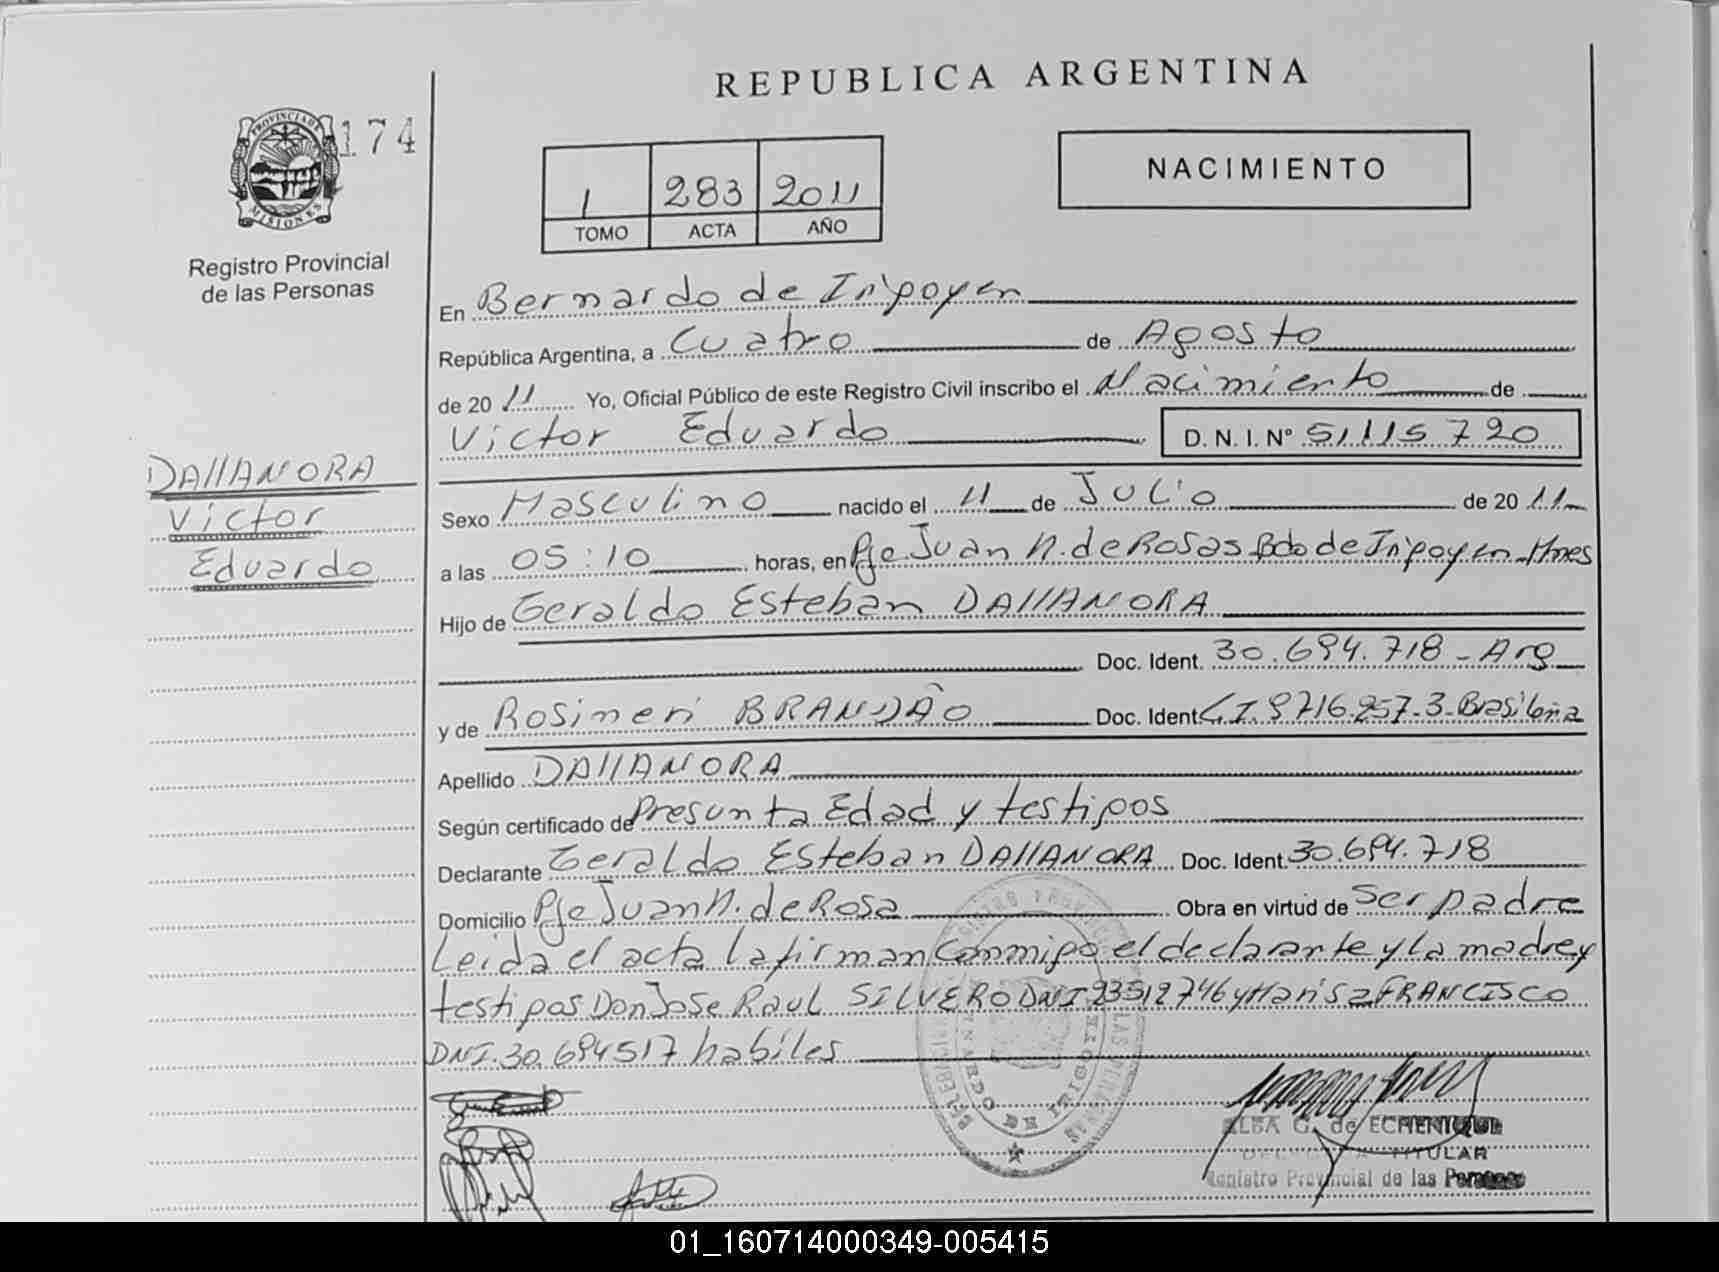 REPUBLICA ARGENTINA
PROVINCIA DE MISIONES
174
1 283 2011
TOMO ACTA AÑO
NACIMIENTO
Registro Provincial
de las Personas
En Bernardo de Irigoyen
República Argentina, a Cuatro de Agosto
de 20 11 Yo, Oficial Público de este Registro Civil inscribo el Nacimiento de
Victor Eduardo D. N. I. N° 51115720
DAllANORA
Victor
Eduardo
Sexo Masculino nacido el 11 de Julio de 20 11
a las 05:10 horas, en Pje. Juan M. de Rosas Bdo de Irigoyen Mnes
Hijo de Geraldo Esteban DAllANORA
Doc. Ident. 30.694.718 - Arg
y de Rosimeri BRANDÃO Doc. Ident C.I. 9716.257-3-Brasileña
Apellido DAllANORA
Según certificado de Presunta Edad y testigos
Declarante Geraldo Esteban DAllANORA Doc. Ident. 30.694.718
Domicilio Pje Juan M. de Rosa Obra en virtud de Ser padre
Leida el acta la firman Conmigo el declarante y la madre y
testigos Don Jose Raul SILVERO DNI 23512746 y Marisa FRANCISCO
DNI. 30.694517 habiles
ELBA G. de ECHENIQUE
DELEGADA TITULAR
Registro Provincial de las Personas
01_160714000349-005415